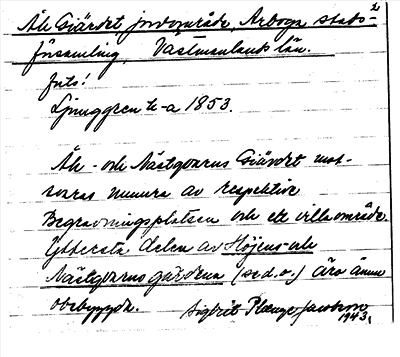 2
Åh Giärdet, jordområde, Arboga stads-
församling, Västmanlands län.
Ljunggren k-a 1853.
Åh- och Nästqvarns Giärdet mot-
svaras numera av respektive
Begravningsplatsen och ett villaområde.
Yttersta delen av Höjens- och
Nästqvarnsgärdena (se d.o.) äro ännu
obebyggda.
Sigbrit Plænge Jacobson
1943.